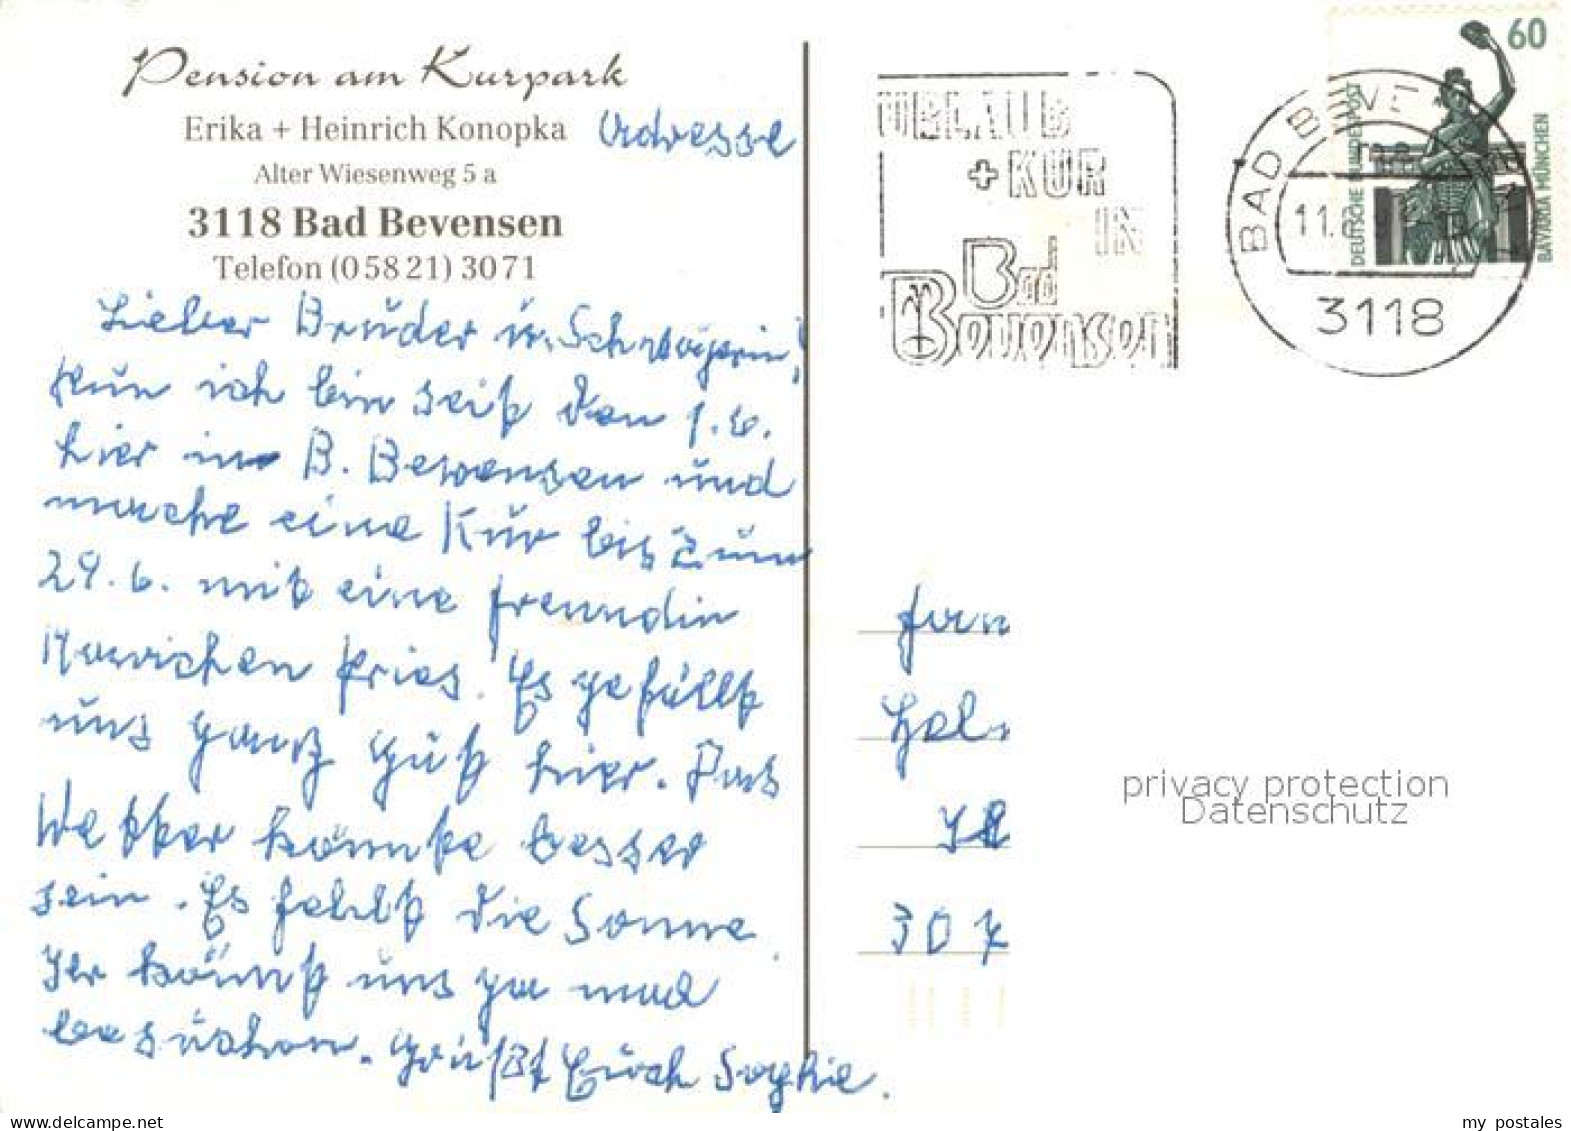 Pension am Kurpark
Erika + Heinrich Konopka Adresse
Alter Wiesenweg 5 a
3118 Bad Bevensen
Telefon (0 58 21) 30 71
Lieber Bruder u. Schwägerin!
Nun ich bin seit den 1.6.
hier in B. Bewensen und
mache eine Kur bis zum
29.6. mit eine freundin
Mariechen Fries. Es gefällt
uns ganz gut hier. Das
Wetter könnte besser
sein. Es fehlt die Sonne.
Ihr könnt uns ja mal
besuchen. Grüßt Euch Sophie.
URLAUB
+ KUR
IN
Bad
Bevensen
BAD BEVE
11.
3118
60
DEUTSCHE BUNDESPOST
BAVARIA MÜNCHEN
30
privacy protection
Datenschutz
© the-seller
my_postales